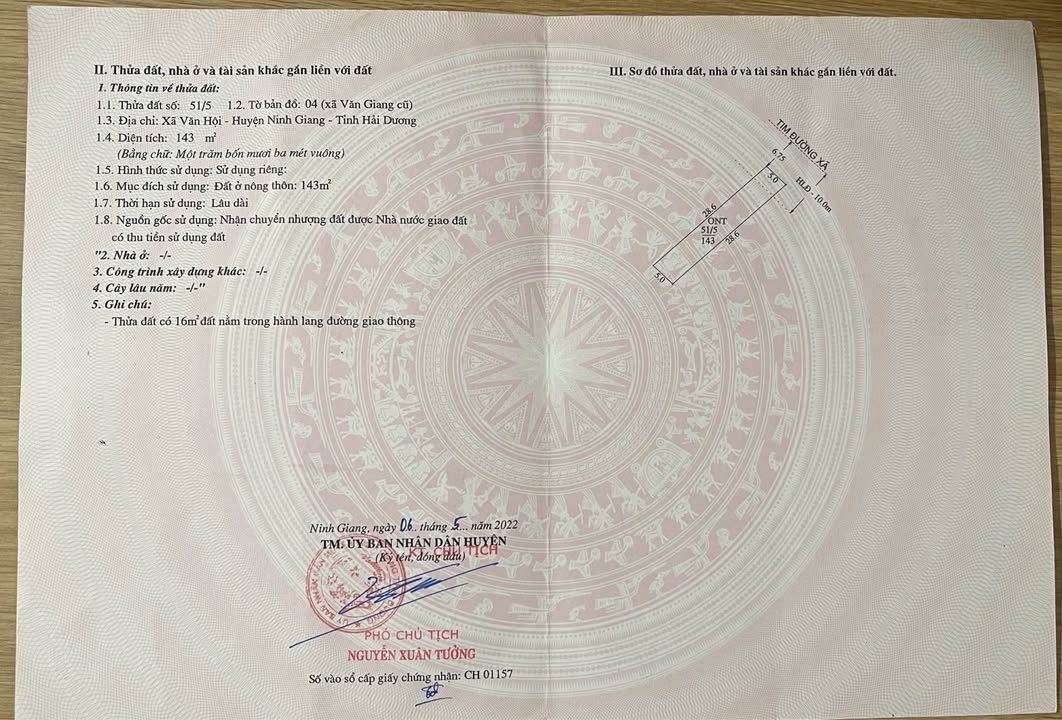 II. Thửa đất, nhà ở và tài sản khác gắn liền với đất
1. Thông tin về thửa đất:
1.1. Thửa đất số: 51/5 1.2. Tờ bản đồ: 04 (xã Văn Giang cũ)
1.3. Địa chỉ: Xã Văn Hội - Huyện Ninh Giang - Tỉnh Hải Dương
1.4. Diện tích: 143 m²
(Bằng chữ: Một trăm bốn mươi ba mét vuông)
1.5. Hình thức sử dụng: Sử dụng riêng:
1.6. Mục đích sử dụng: Đất ở nông thôn: 143m²
1.7. Thời hạn sử dụng: Lâu dài
1.8. Nguồn gốc sử dụng: Nhận chuyển nhượng đất được Nhà nước giao đất
có thu tiền sử dụng đất
"2. Nhà ở: -/-
3. Công trình xây dựng khác: -/-
4. Cây lâu năm: -/-"
5. Ghi chú:
- Thửa đất có 16m² đất nằm trong hành lang đường giao thông
Ninh Giang, ngày 06.. tháng 5... năm 2022
TM. ỦY BAN NHÂN DÂN HUYỆN
KT. CHỦ TỊCH
(Ký tên, đóng dấu)
PHÓ CHỦ TỊCH
NGUYỄN XUÂN TƯỞNG
Số vào sổ cấp giấy chứng nhận: CH 01157
III. Sơ đồ thửa đất, nhà ở và tài sản khác gắn liền với đất.
TIM ĐƯỜNG XÃ
6.75
5.0
HLĐ - 10.0m
28.6
ONT
51/5
143
28.6
5.0